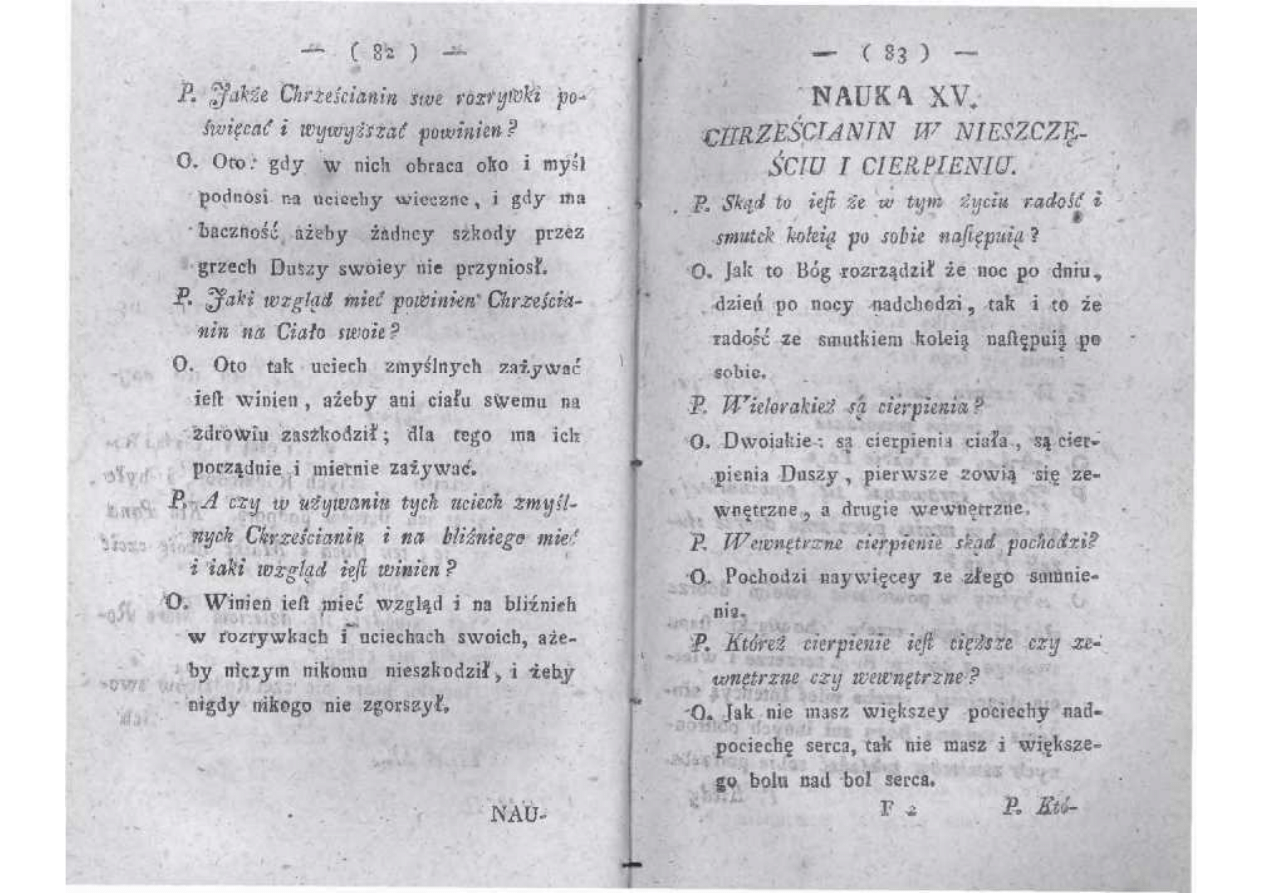 — ( 82 ) —
P. Jakże Chrześcianin swe rozrywki po-
święcać i wywyższać powinien?
O. Oto: gdy w nich obraca oko i myśl
podnosi na uciechy wieczne, i gdy ma
baczność ażeby żadney szkody przez
grzech Duszy swoiey nie przyniosł.
P. Jaki wzgląd mieć powinien Chrześcia-
nin na Ciało swoie?
O. Oto tak uciech zmyślnych zażywać
ieſt winien, ażeby ani ciału swemu na
zdrowiu zaszkodził; dla tego ma ich
porządnie i miernie zażywać.
P. A czy w używaniu tych uciech zmyśl-
nych Chrześcianin i na bliźniego mieć
i iaki wzgląd ieſt winien?
O. Winien ieſt mieć wzgląd i na bliźnich
w rozrywkach i uciechach swoich, aże-
by niczym nikomu nieszkodził, i żeby
nigdy nikogo nie zgorszył.
NAU-
— ( 83 ) —
NAUKA XV.
CHRZEŚCIANIN W NIESZCZĘ-
ŚCIU I CIERPIENIU.
P. Skąd to ieſt że w tym życiu radość i
smutek koleią po sobie naſtępuią?
O. Jak to Bóg rozrządził że noc po dniu,
dzień po nocy nadchodzi, tak i to że
radość ze smutkiem koleią naſtępuią po
sobie.
P. Wielorakież są cierpienia?
O. Dwoiakie: są cierpienia ciała, są cier-
pienia Duszy, pierwsze zowią się ze-
wnętrzne, a drugie wewnętrzne.
P. Wewnętrzne cierpienie skąd pochodzi?
O. Pochodzi naywięcey ze złego sumnie-
nia.
P. Któreż cierpienie ieſt cięższe czy ze-
wnętrzne czy wewnętrzne?
O. Jak nie masz większey pociechy nad
pociechę serca, tak nie masz i większe-
go bolu nad bol serca.
F 2 P. Któ-